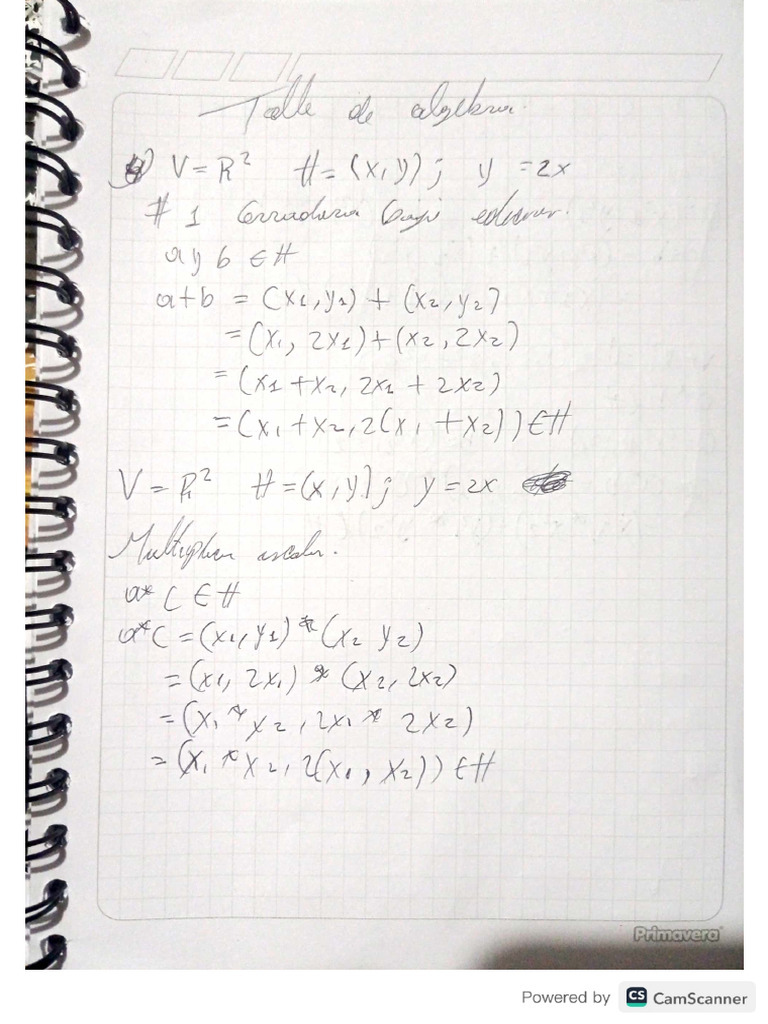 Talle de algebra.
g) V = R² H = (x, y) ; y = 2x
# 1 Cerradura bajo
a y b ∈ H
a+b = (x1, y1) + (x2, y2)
= (x1, 2x1) + (x2, 2x2)
= (x1 + x2, 2x1 + 2x2)
= (x1 + x2, 2(x1 + x2)) ∈ H
V = R² H = (x, y) ; y = 2x
escalar.
a* C ∈ H
a*C = (x1, y1) * (x2 y2)
= (x1, 2x1) * (x2, 2x2)
= (x1 * x2, 2x1 * 2x2)
= (x1 * x2, 2(x1, x2)) ∈ H
Primavera
Powered by CS CamScanner